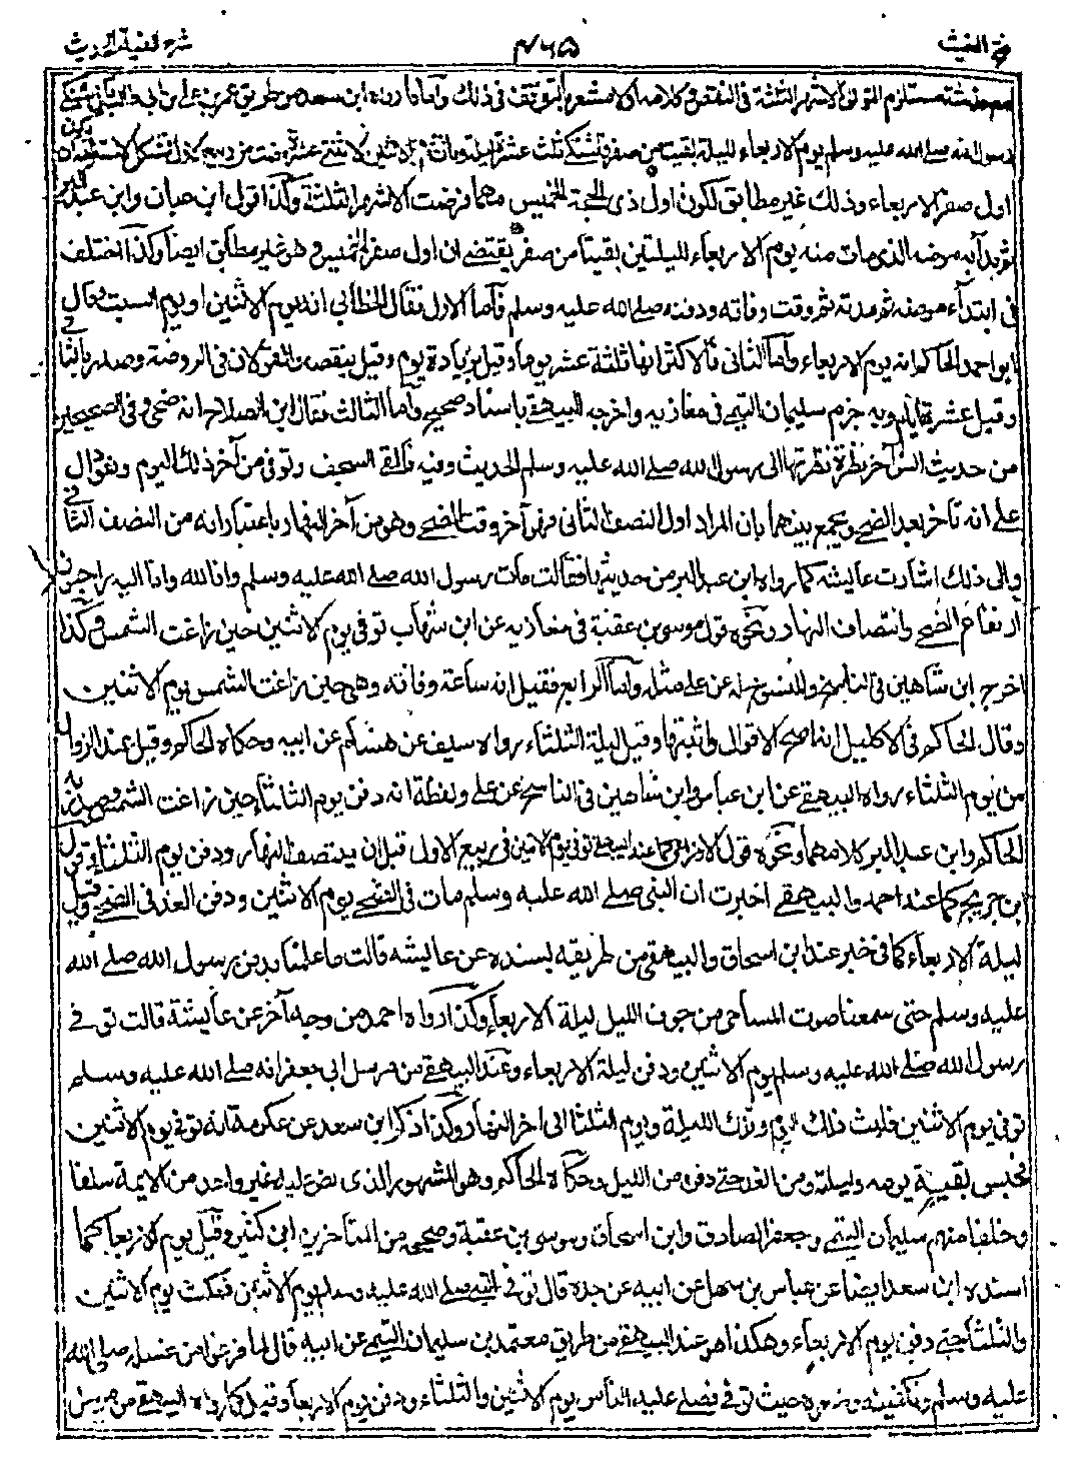 فتح المغيث ٤٦٥ شرح الفية الحديث
مستلزم التوالي الاشهر الثلثة في النقص وكلامه كالمشعر بالتوقف في ذلك واما ما رواه ابن سعد من طريق عمر بن علي بن ابي طالب قال اشتكى
رسول الله صلى الله عليه وسلم يوم الاربعاء لليلة بقيت من صفر فاشتكى ثلث عشرة ليلة ومات يوم الاثنين لاثنتي عشرة مضت من ربيع
اول صفر الاربعاء وذلك غير مطابق لكون اول ذي الحجة الخميس مهما فرضت الاشهر الثلثة وكذا قول ابن حبان وابن عبد البر
ثم بدأ به مرضه الذي مات منه يوم الاربعاء لليلتين بقيتا من صفر يقتضي ان اول صفر الخميس وهو غير مطابق ايضا وكذا اختلف
في ابتداء مرضه ثم مدته ثم وقت وفاته ودفنه صلى الله عليه وسلم فاما الاول فقال الخطابي انه يوم الاثنين او يوم السبت وقال
ابو احمد الحاكم انه يوم الاربعاء واما الثاني فالاكثر انها ثلثة عشر يوما وقيل بزيادة يوم وقيل بنقصه والقولان في الروضة وصدر بالثاني
وقيل عشرة ايام وبه جزم سليمان التيمي في مغازيه واخرجه البيهقي باسناد صحيح واما الثالث فقال ابن الصلاح انه ضحى وفي الصحيحين
من حديث انس آخر نظرة نظرتها الى رسول الله صلى الله عليه وسلم الحديث وفيه فالقى السجف وتوفي من آخر ذلك اليوم وهو دال
على انه تاخر بعد الضحى ويجمع بينهما بان المراد اول النصف الثاني فهو آخر وقت الضحى وهو من آخر النهار باعتبار انه من النصف الثاني
والى ذلك اشارت عايشة كما رواه ابن عبد البر من حديثها فقالت مات رسول الله صلى الله عليه وسلم وانا لله وانا اليه راجعون
ارتفاع الضحى وانتصاف النهار ونحوه قول موسى بن عقبة في مغازيه عن ابن شهاب توفي يوم الاثنين حين زاغت الشمس وكذا
اخرج ابن شاهين في الناسخ والمنسوخ له عن علي مثله واما الرابع فقيل انه ساعة وفاته وهي حين زاغت الشمس يوم الاثنين
وقال الحاكم في الاكليل انه اصح الاقوال واثبتها وقيل ليلة الثلثاء رواه سيف عن هشام عن ابيه وحكاه الحاكم وقيل عند الزوال
من يوم الثلثاء رواه البيهقي عن ابن عباس وابن شاهين في الناسخ عن علي ولفظه انه دفن يوم الثلثاء حين زاغت الشمس وصدر به
الحاكم وابن عبد البر كلامهما ونحوه قول الاوزاعي كما عند البيهقي توفي يوم الاثنين في ربيع الاول قبل ان ينتصف النهار ودفن يوم الثلثاء وقول
ابن جريج كما عند احمد والبيهقي اخبرت ان النبي صلى الله عليه وسلم مات في الضحى يوم الاثنين ودفن الغد في الضحى وقيل
ليلة الاربعاء كما في خبر عند ابن اسحاق والبيهقي من طريقه بسنده عن عايشة قالت ما علمنا بدفن رسول الله صلى الله
عليه وسلم حتى سمعنا صوت المساحي من جوف الليل ليلة الاربعاء وكذا رواه احمد من وجه آخر عن عايشة قالت توفي
رسول الله صلى الله عليه وسلم يوم الاثنين ودفن ليلة الاربعاء وعند البيهقي من مرسل ابي جعفر انه صلى الله عليه وسلم
توفي يوم الاثنين فلبث ذلك اليوم وتلك الليلة ويوم الثلثا الى آخر النهار وكذا ذكر ابن سعد عن عكرمة انه توفي يوم الاثنين
فحبس بقية يومه وليلته ومن الغد حتى دفن من الليل وحكاه الحاكم وهو المشهور الذي نص عليه غير واحد من الايمة سلفا
وخلفا منهم سليمان التيمي وجعفر الصادق وابن اسحاق وموسى بن عقبة وصححه من المتاخرين ابن كثير وقيل يوم الاربعا كما
اسنده ابن سعد ايضا عن عباس بن سهل عن ابيه عن جده قال توفي النبي صلى الله عليه وسلم يوم الاثنين فمكث يوم الاثنين
والثلثا حتى دفن يوم الاربعاء وهكذا هو عند البيهقي من طريق معتمر بن سليمان التيمي عن ابيه قال لما فرغوا من غسله صلى الله
عليه وسلم وتكفينه وضعوه حيث توفي فصلى عليه الناس يوم الاثنين والثلثاء ودفن يوم الاربعاء وقيل كما رواه البيهقي من